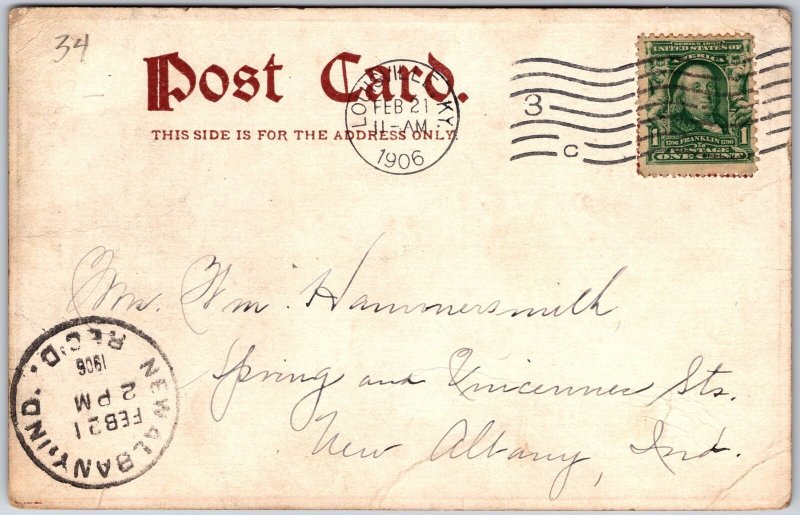 34
Post Card.
THIS SIDE IS FOR THE ADDRESS ONLY.
LOUISVILLE, KY.
FEB 21
11-AM
1906
3
C
SERIES 1902
UNITED STATES OF
AMERICA
1706 FRANKLIN 1790
1 POSTAGE 1
ONE CENT
Mr. Wm. Hammersmith
Spring and Vincennes Sts.
New Albany, Ind.
NEW ALBANY, IND. REC'D.
1906
2 PM
FEB 21